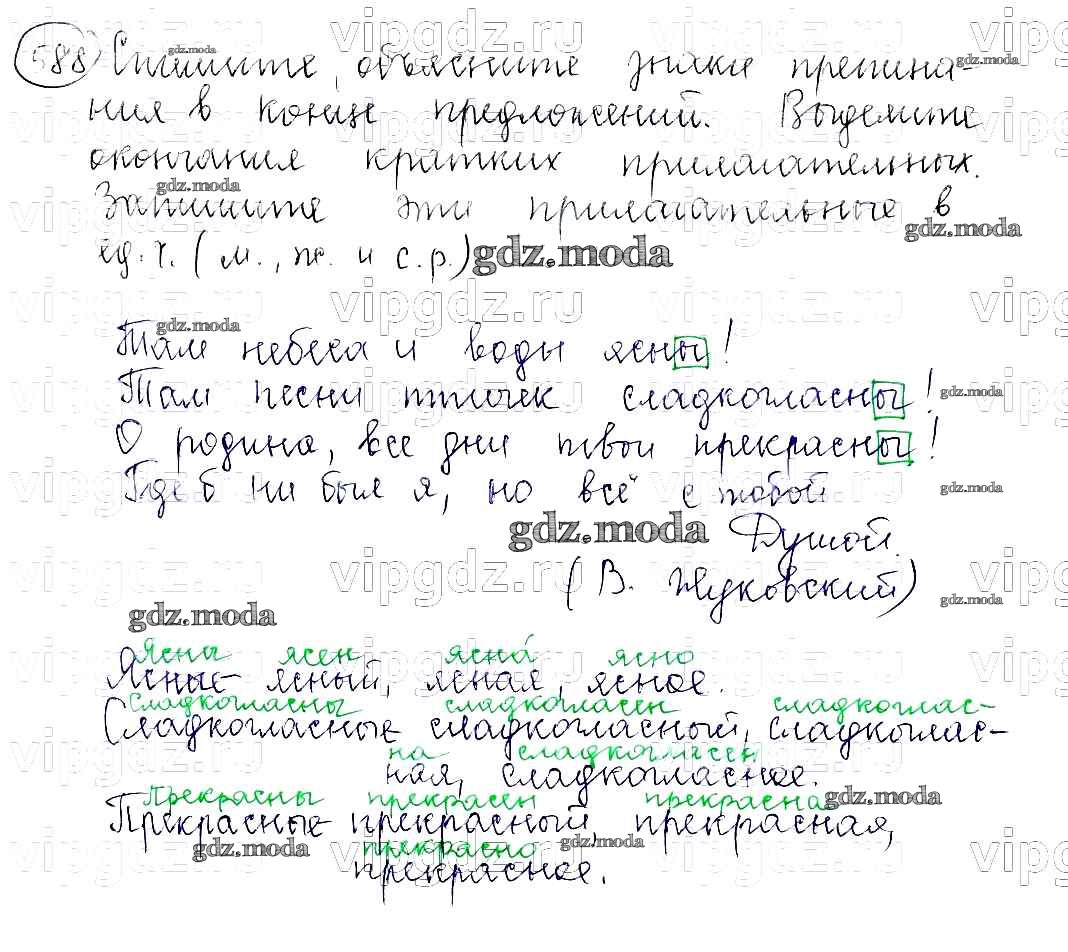 588 Спишите, объясните знаки препина-
ния в конце предложений. Выделите
окончания кратких прилагательных.
Запишите эти прилагательные в
ед. ч. (м., ж. и с.р.)
Там небеса и воды ясны!
Там песни птичек сладкогласны!
О родина, все дни твои прекрасны!
Где б ни был я, но всё с тобой
Душой.
(В. Жуковский)
Ясны ясен ясна́ ясно
Ясные - ясный, ясная, ясное.
Сладкогласны сладкогласен сладкоглас-
Сладкогласные сладкогласный, сладкоглас-
на сладкогласен
ная, сладкогласное.
Прекрасны прекрасен прекрасна
Прекрасные - прекрасный, прекрасная,
прекрасно
прекрасное.
gdz.moda
vipgdz.ru